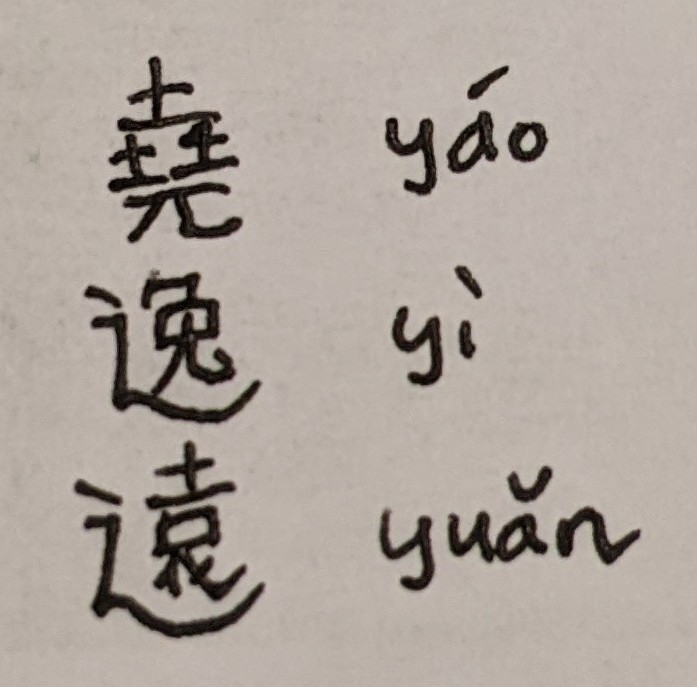 堯 yáo
逸 yì
遠 yuǎn